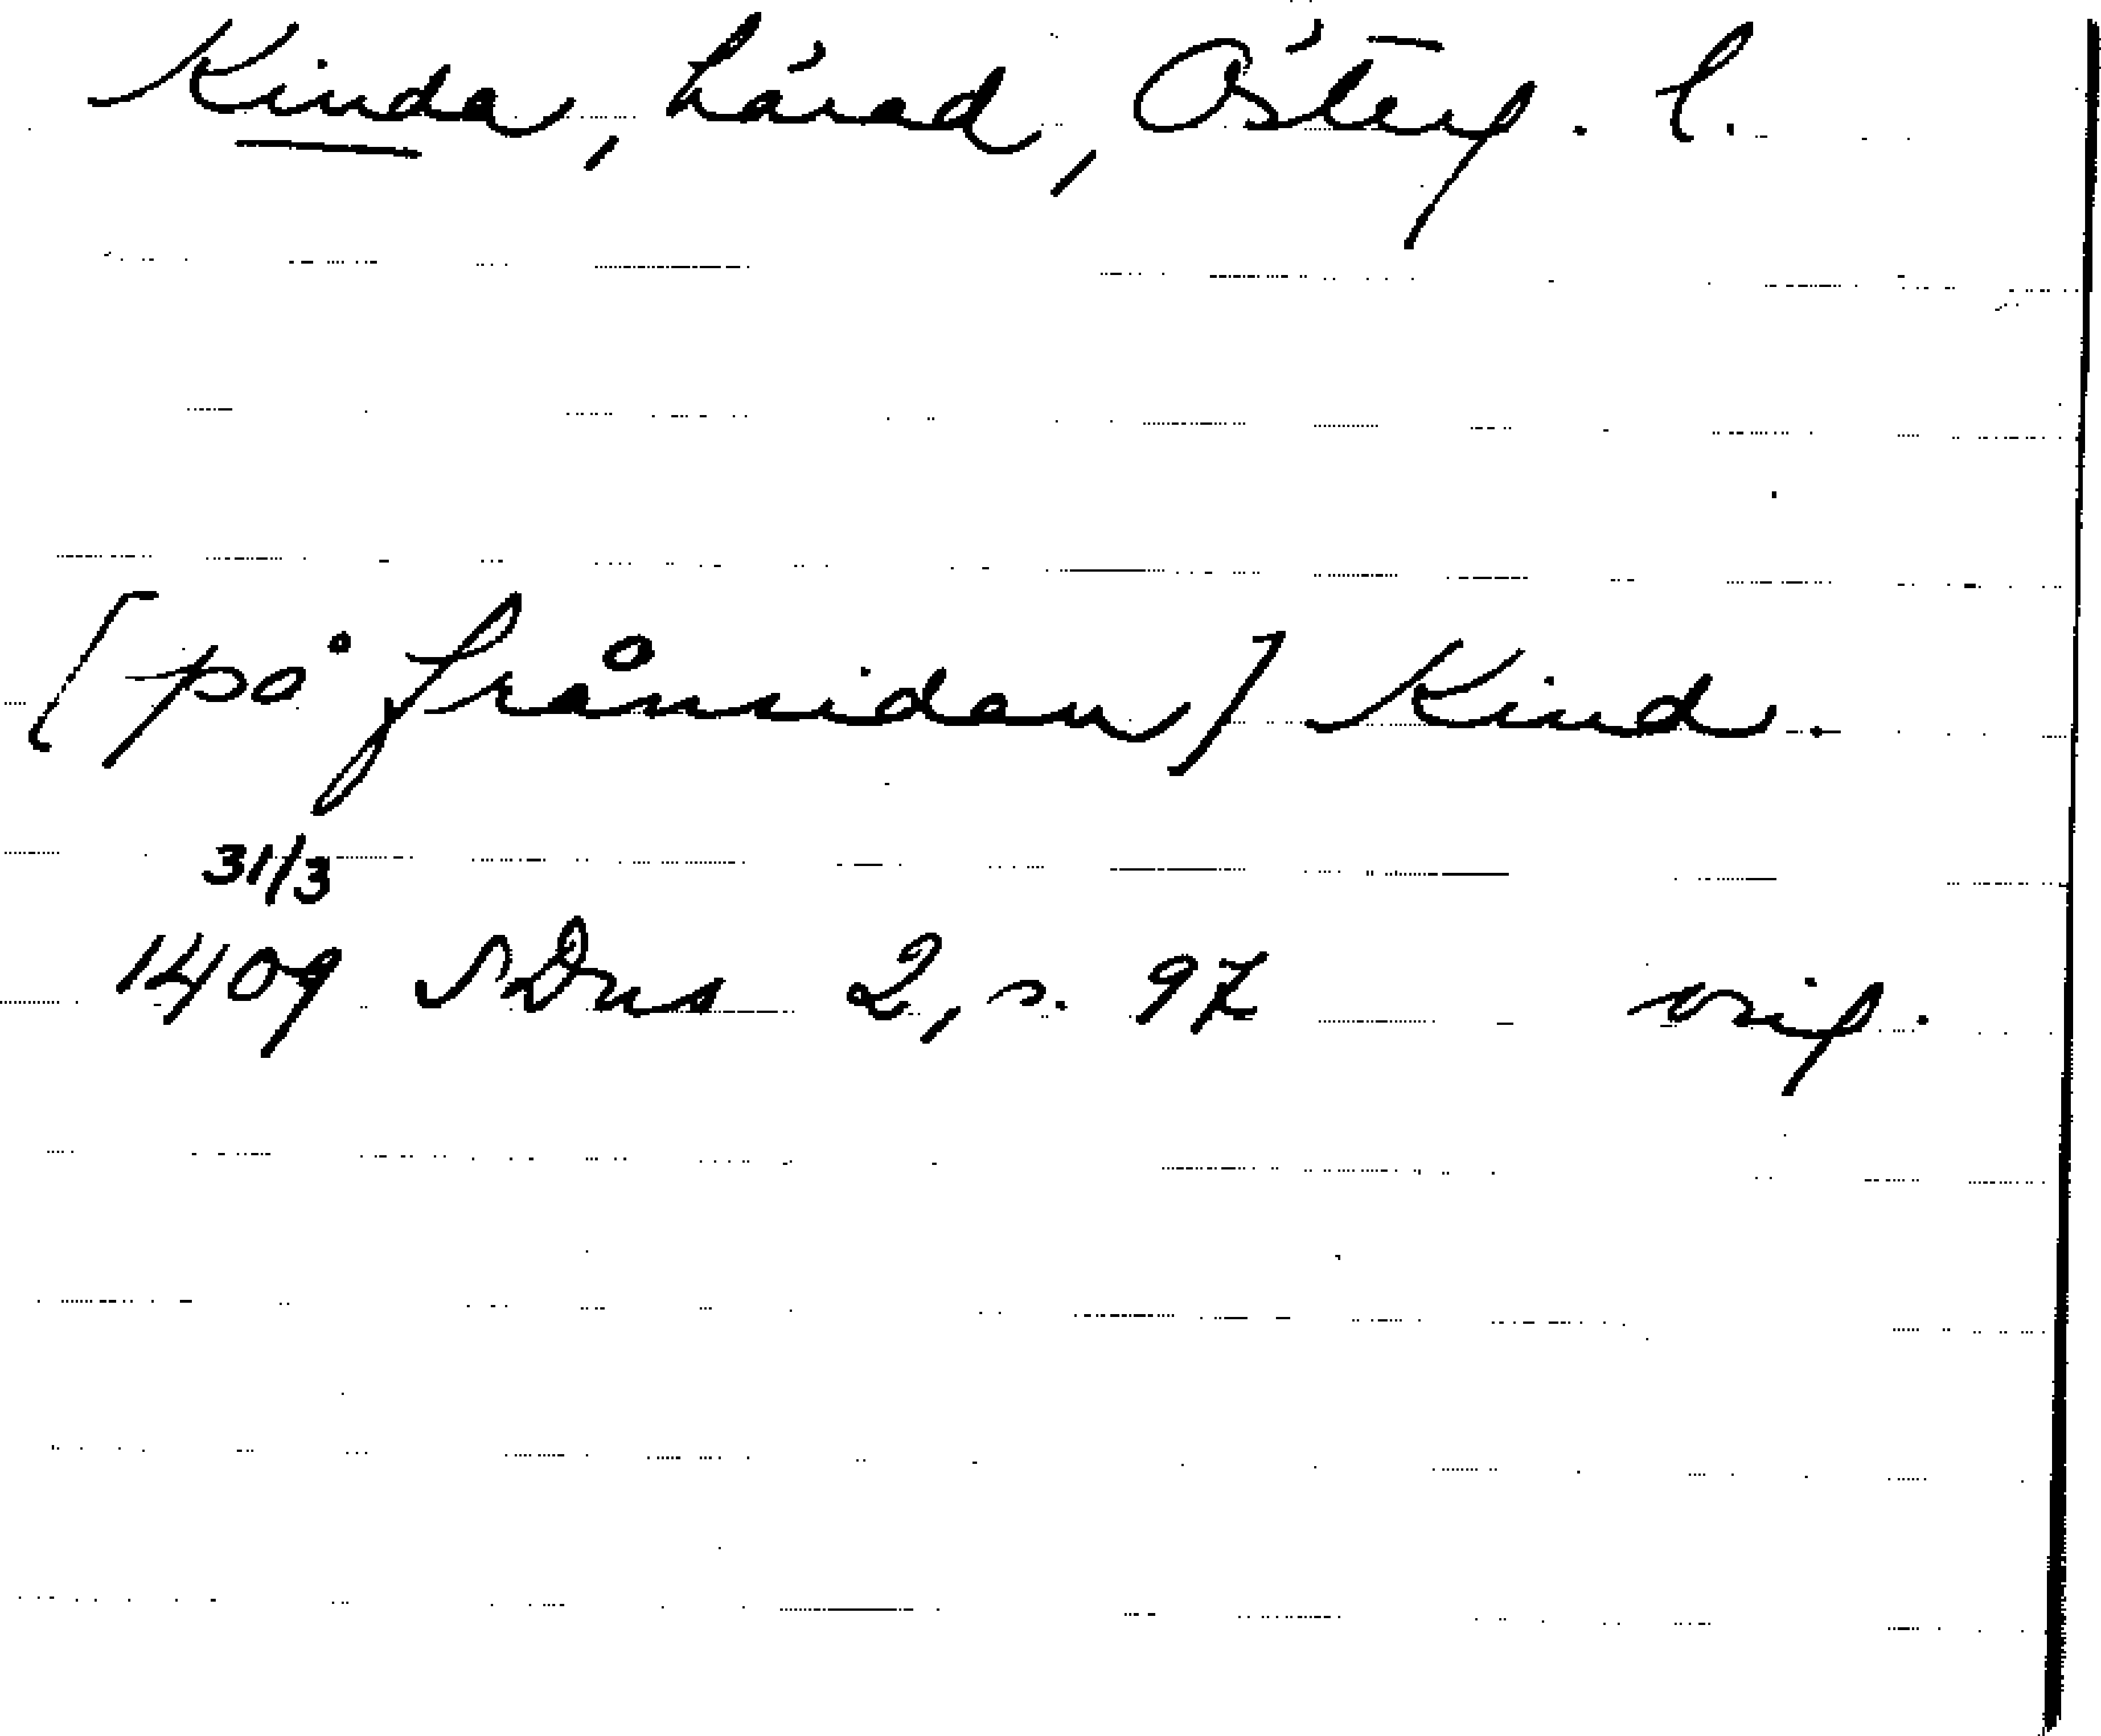 Kinda, härad, Österg. l.
[på frånsidan] Kind.
31/3
1409 SDns 2, s. 97 orig.